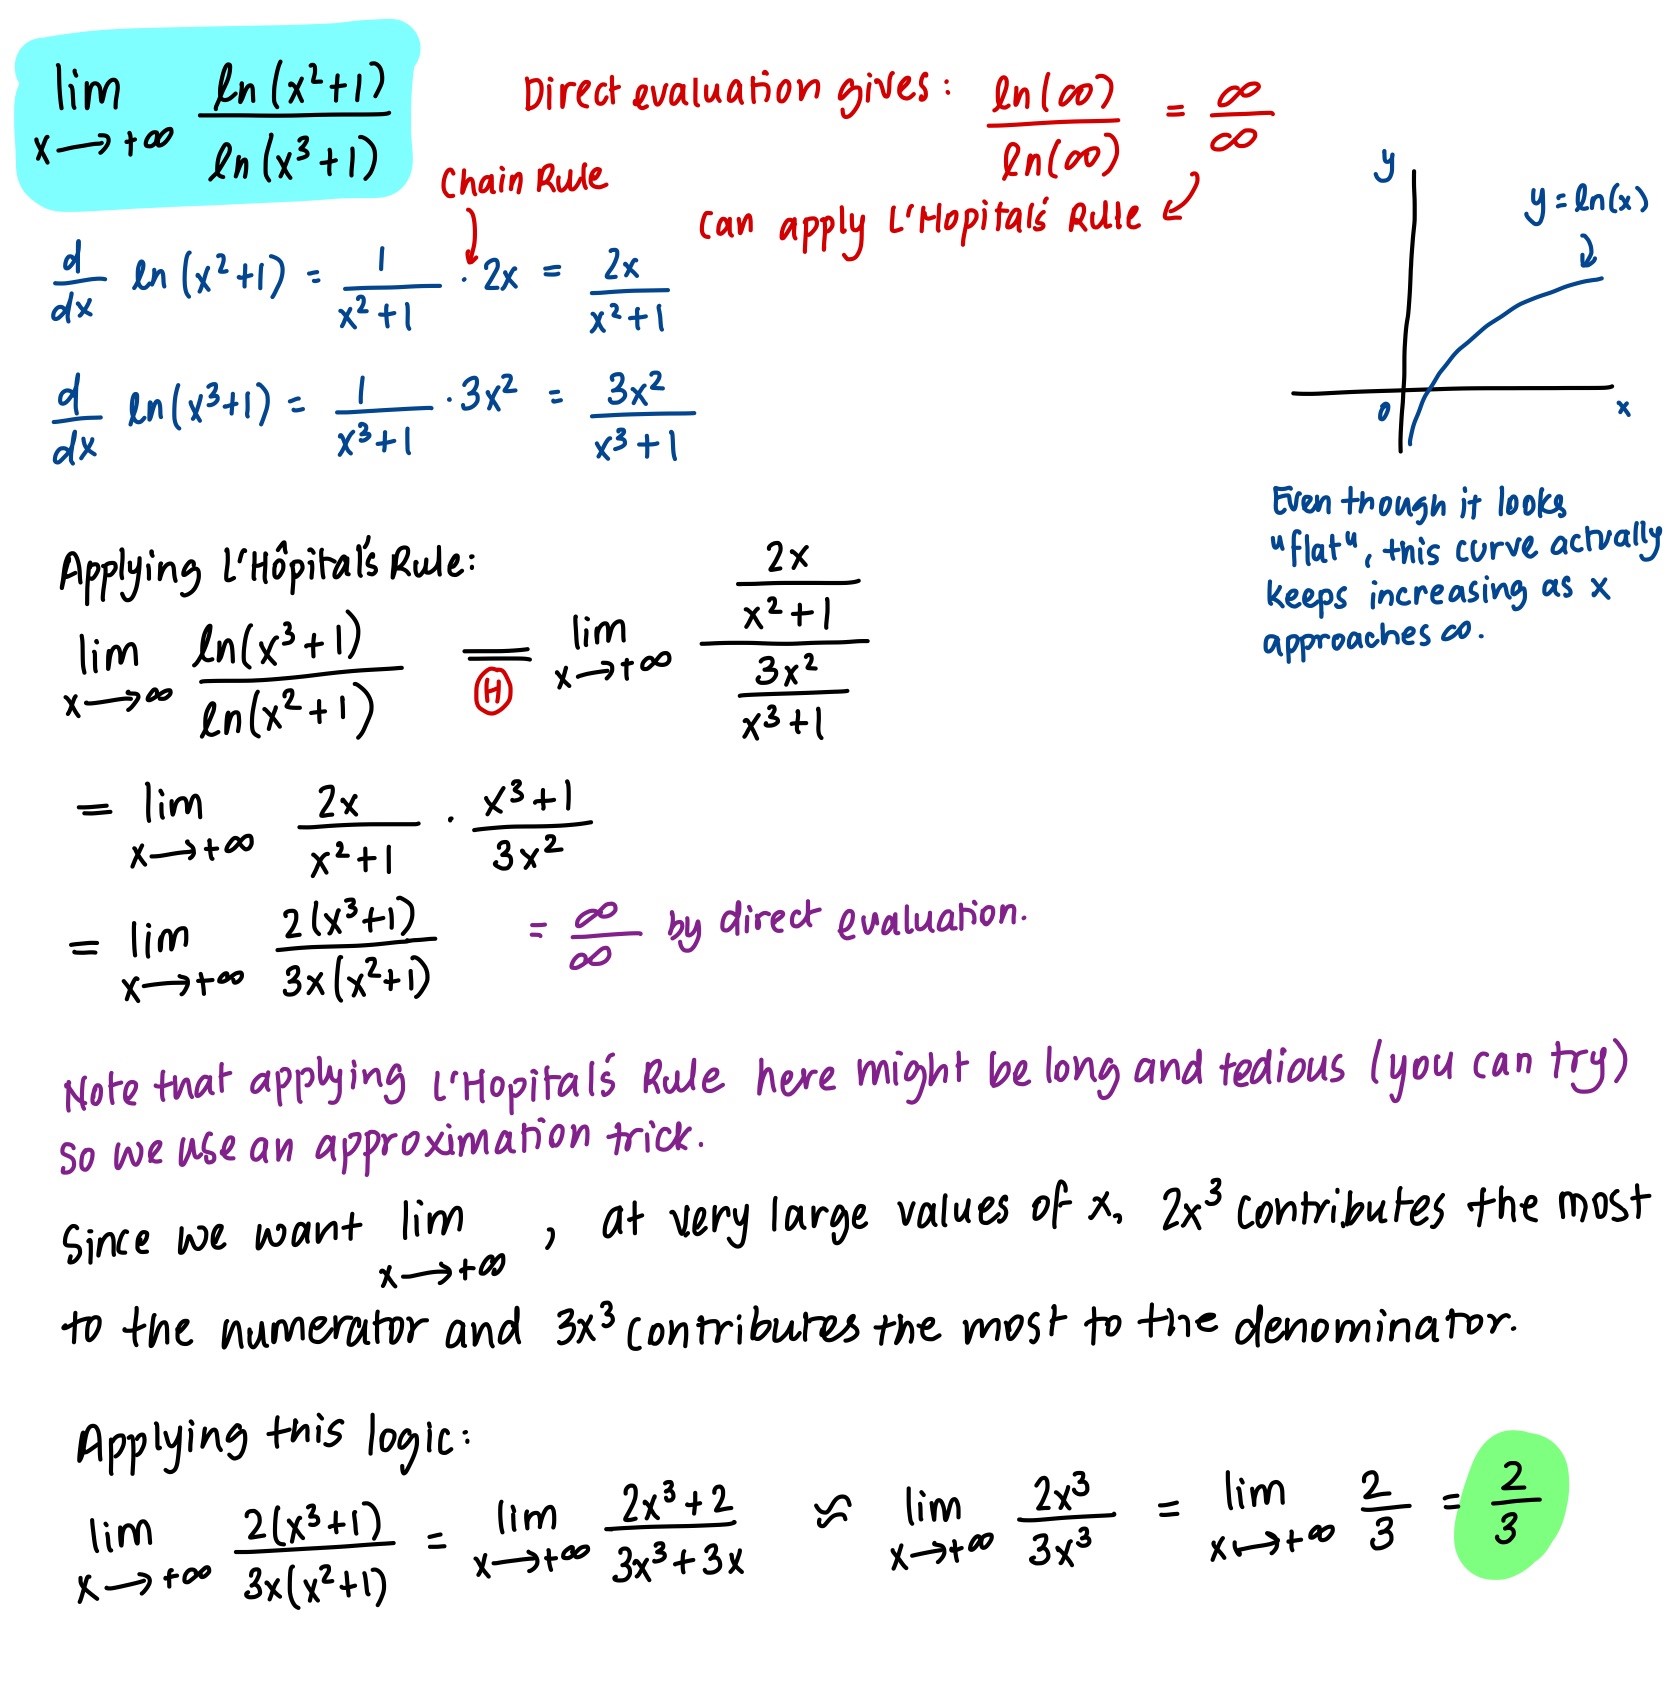 lim x→+∞ ln(x²+1) / ln(x³+1)
Direct evaluation gives: ln(∞) / ln(∞) = ∞ / ∞
Can apply L'Hopital's Rule
Chain Rule
d/dx ln(x²+1) = 1/(x²+1) · 2x = 2x/(x²+1)
d/dx ln(x³+1) = 1/(x³+1) · 3x² = 3x²/(x³+1)
y
y = ln(x)
0
x
Even though it looks
"flat", this curve actually
keeps increasing as x
approaches ∞.
Applying L'Hôpital's Rule:
lim x→∞ ln(x³+1) / ln(x²+1) = (H) lim x→+∞ (2x/(x²+1)) / (3x²/(x³+1))
= lim x→+∞ 2x/(x²+1) · (x³+1)/3x²
= lim x→+∞ 2(x³+1) / 3x(x²+1) = ∞/∞ by direct evaluation.
Note that applying L'Hopital's Rule here might be long and tedious (you can try)
So we use an approximation trick.
Since we want lim x→+∞, at very large values of x, 2x³ contributes the most
to the numerator and 3x³ contributes the most to the denominator.
Applying this logic:
lim x→+∞ 2(x³+1) / 3x(x²+1) = lim x→+∞ (2x³+2) / (3x³+3x) ≈ lim x→+∞ 2x³/3x³ = lim x→+∞ 2/3 = 2/3